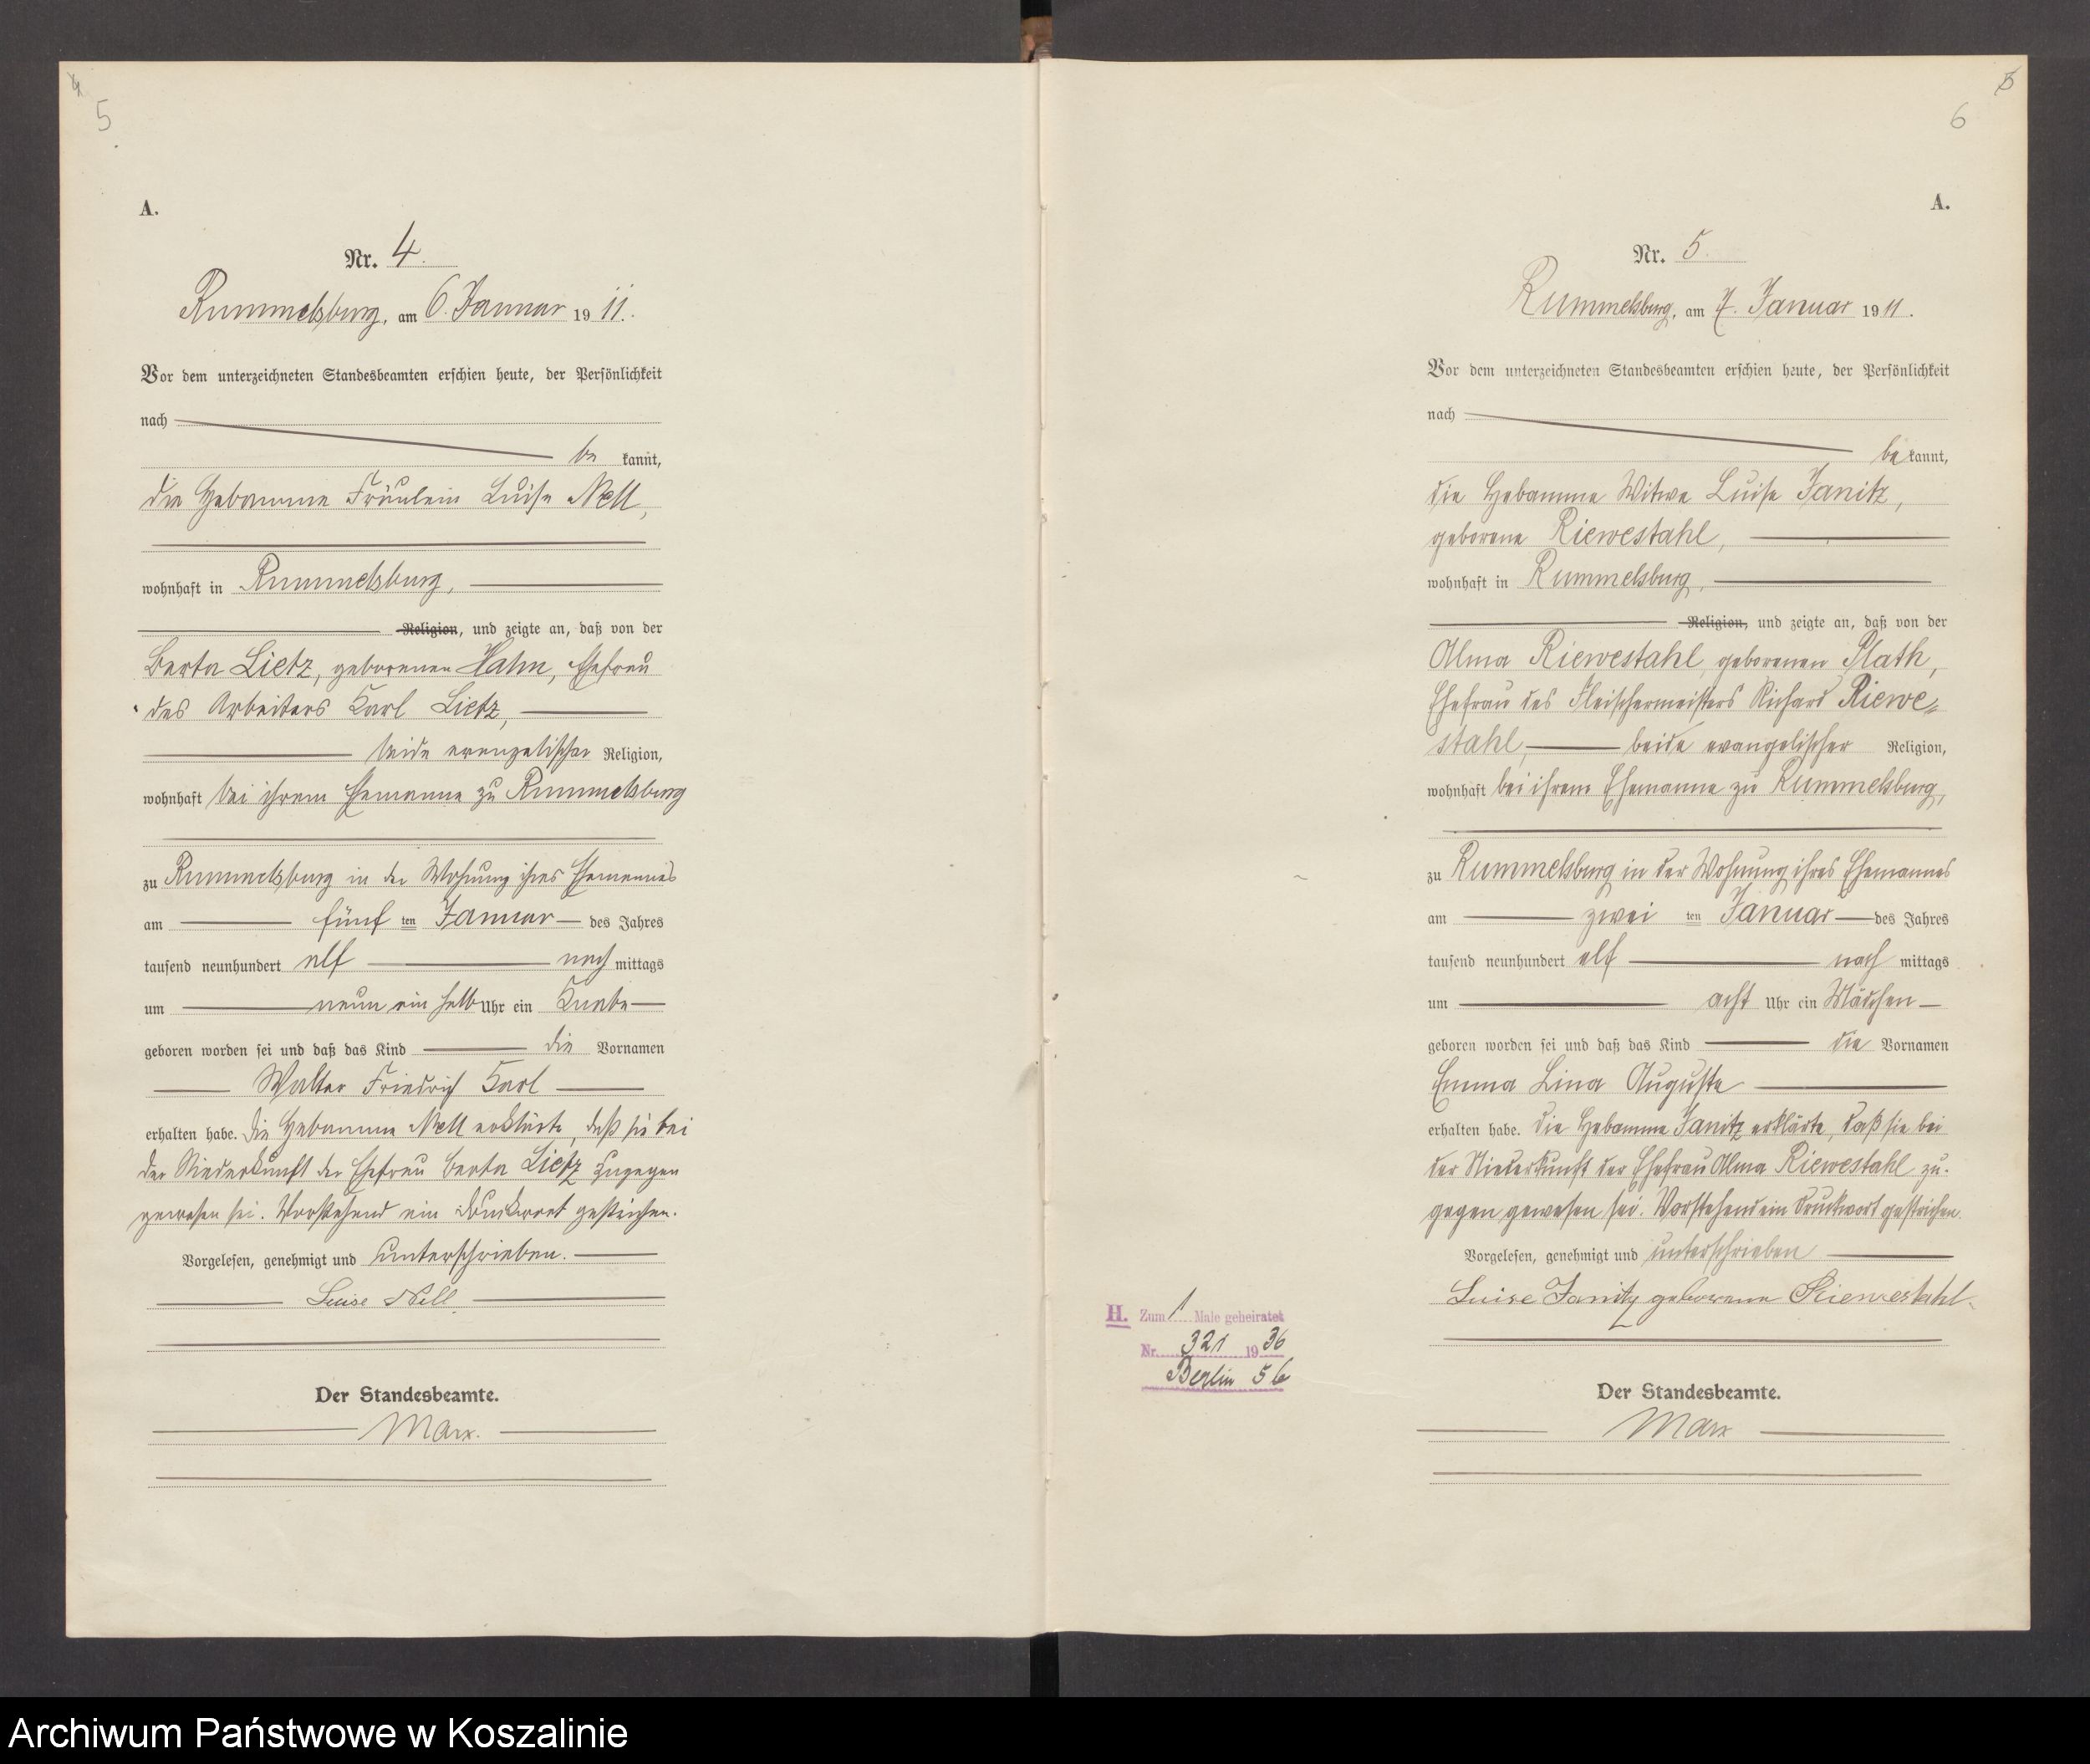 4
5
A.
Nr. 4.
Rummelsburg, am 6. Januar 1911.
Vor dem unterzeichneten Standesbeamten erschien heute, der Persönlichkeit
nach
be kannt,
die Hebamme Fräulein Luise Nell,
wohnhaft in Rummelsburg,
Religion, und zeigte an, daß von der
Berta Lietz, geborenen Hahn, Ehefrau
des Arbeiters Karl Lietz,
beide evangelischer Religion,
wohnhaft bei ihrem Ehemanne zu Rummelsburg
zu Rummelsburg in der Wohnung ihres Ehemannes
am fünf ten Januar des Jahres
tausend neunhundert elf nach mittags
um neun ein halb Uhr ein Knabe
geboren worden sei und daß das Kind die Vornamen
Walter Friedrich Karl
erhalten habe. Die Hebamme Nell erklärte, daß sie bei
der Niederkunft der Ehefrau Berta Lietz zugegen
gewesen sei. Vorstehend ein Druckwort gestrichen.
Vorgelesen, genehmigt und unterschrieben.
Luise Nell.
Der Standesbeamte.
Marx.
5
6
A.
Nr. 5.
Rummelsburg, am 7. Januar 1911.
Vor dem unterzeichneten Standesbeamten erschien heute, der Persönlichkeit
nach
be kannt,
die Hebamme Witwe Luise Janitz,
geborene Riewestahl,
wohnhaft in Rummelsburg,
Religion, und zeigte an, daß von der
Alma Riewestahl, geborenen Plath,
Ehefrau des Fleischermeisters Richard Riewe=
stahl, beide evangelischer Religion,
wohnhaft bei ihrem Ehemanne zu Rummelsburg,
zu Rummelsburg in der Wohnung ihres Ehemannes
am zwei ten Januar des Jahres
tausend neunhundert elf nach mittags
um acht Uhr ein Mädchen
geboren worden sei und daß das Kind die Vornamen
Emma Lina Auguste
erhalten habe. Die Hebamme Janitz erklärte, daß sie bei
der Niederkunft der Ehefrau Alma Riewestahl zu-
gegen gewesen sei. Vorstehend ein Druckwort gestrichen.
Vorgelesen, genehmigt und unterschrieben
Luise Janitz geborene Riewestahl.
H. Zum 1 Male geheiratet
Nr. 321 1936
Berlin 5b
Der Standesbeamte.
Marx
Archiwum Państwowe w Koszalinie